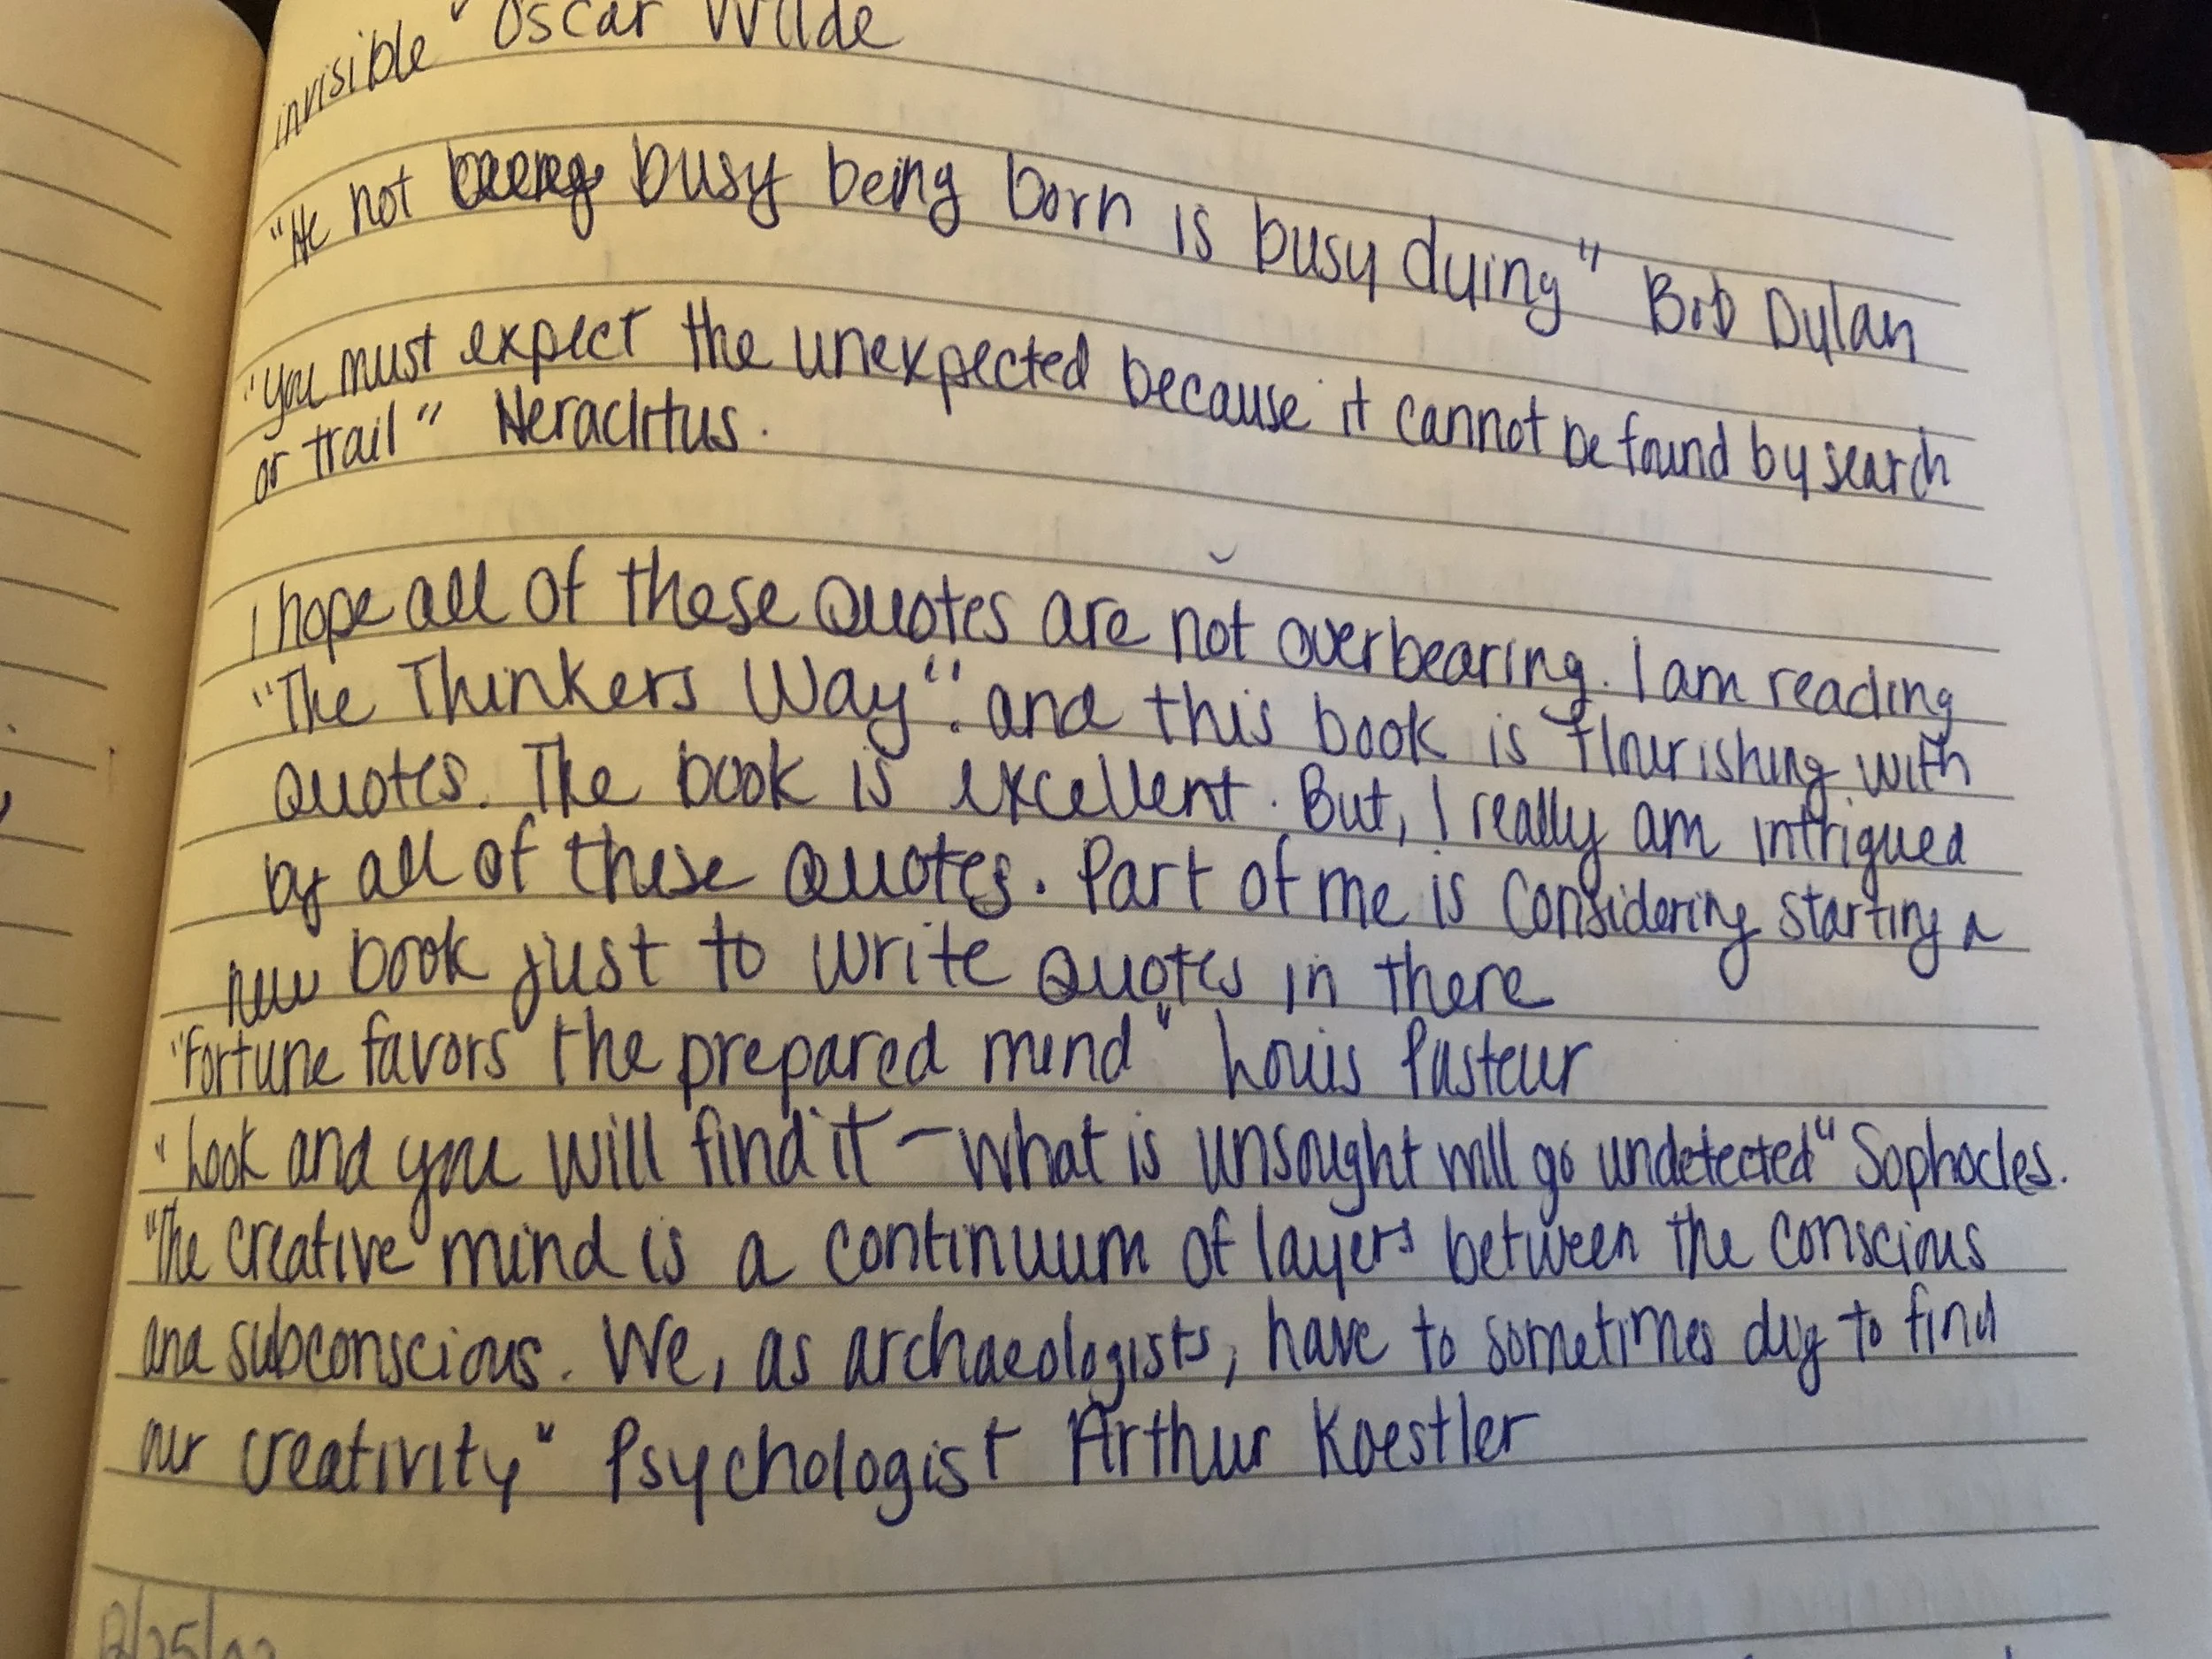 invisible" Oscar Wilde
"He not busy being born is busy dying" Bob Dylan
"you must expect the unexpected because it cannot be found by search
or trail" Heraclitus.
I hope all of these Quotes are not overbearing. I am reading
"The Thinkers Way". and this book is flourishing with
Quotes. The book is excellent. But, I really am intrigued
by all of these Quotes. Part of me is considering starting a
new book just to write Quotes in there
"Fortune favors the prepared mind" Louis Pasteur
"Look and you will find it - what is unsought will go undetected" Sophocles.
"The creative mind is a continuum of layers between the conscious
and subconscious. We, as archaeologists, have to sometimes dig to find
our creativity" Psychologist Arthur Koestler